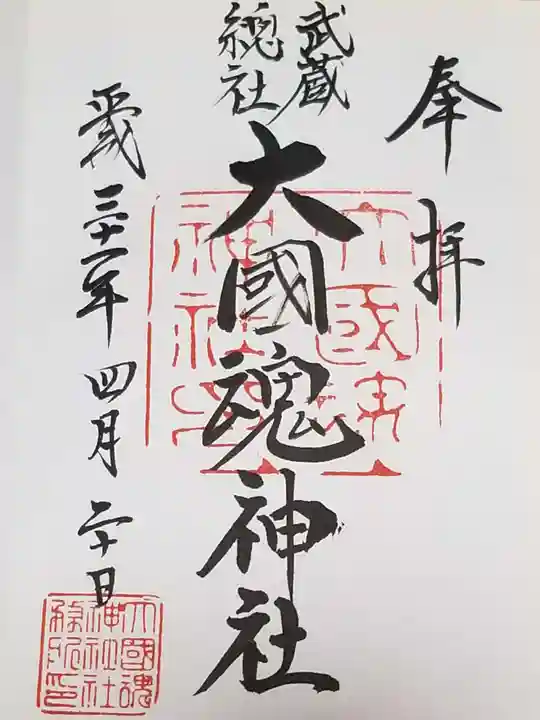 奉拝
武蔵
總社
大國魂神社
平成三十一年四月二十日
大國魂
神社社
務所印